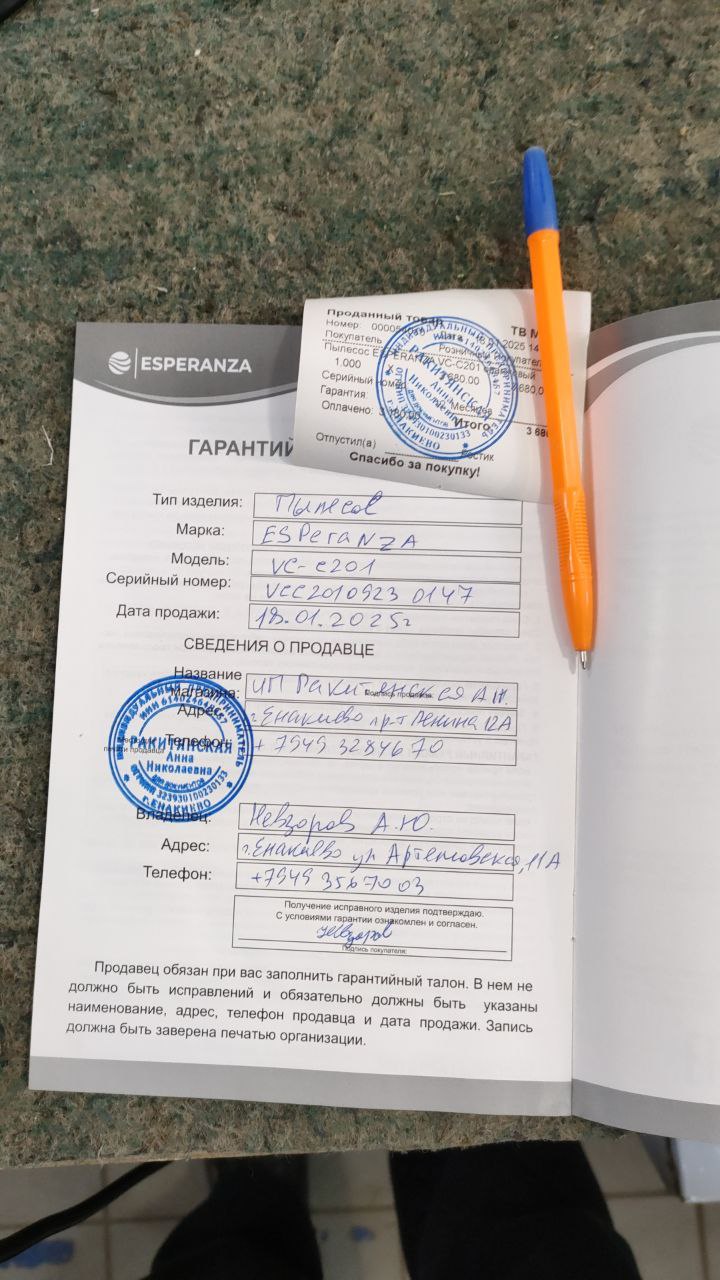 Проданный товар
ТВ М
Номер: 00005
Дата
2025 14
Покупатель
Розничный покупатель
Пылесос ESPERANZA VC-C201
1.000
680,00
Серийный номер
Гарантия:
Месяцев
Оплачено:
Итого
3 68
Отпустил(а)
Спасибо за покупку!
ИНДИВИДУАЛЬНЫЙ ПРЕДПРИНИМАТЕЛЬ
РАКИТЯНСКАЯ
Анна
Николаевна
г. ЕНАКИЕВО
ESPERANZA
ГАРАНТИЙ
Тип изделия: Пылесос
Марка: ESPeraNZA
Модель: VC-c201
Серийный номер: VCC2010923 0147
Дата продажи: 18.01.2025г
СВЕДЕНИЯ О ПРОДАВЦЕ
Название
магазина: ИП Ракитянская А.Н.
Подпись продавца
Адрес: г.Енакиево пр-т Ленина 12А
Телефон: +7949 3284670
печати продавца
ИНДИВИДУАЛЬНЫЙ ПРЕДПРИНИМАТЕЛЬ
РАКИТЯНСКАЯ
Анна
Николаевна
ДЛЯ ДОКУМЕНТОВ
ОГРНИП 323930100230133
г. ЕНАКИЕВО
Владелец: Невзоров А.Ю.
Адрес: г.Енакиево ул Артемовская, 11А
Телефон: +7949 3567003
Получение исправного изделия подтверждаю.
С условиями гарантии ознакомлен и согласен.
Невзоров
Подпись покупателя:
Продавец обязан при вас заполнить гарантийный талон. В нем не
должно быть исправлений и обязательно должны быть указаны
наименование, адрес, телефон продавца и дата продажи. Запись
должна быть заверена печатью организации.